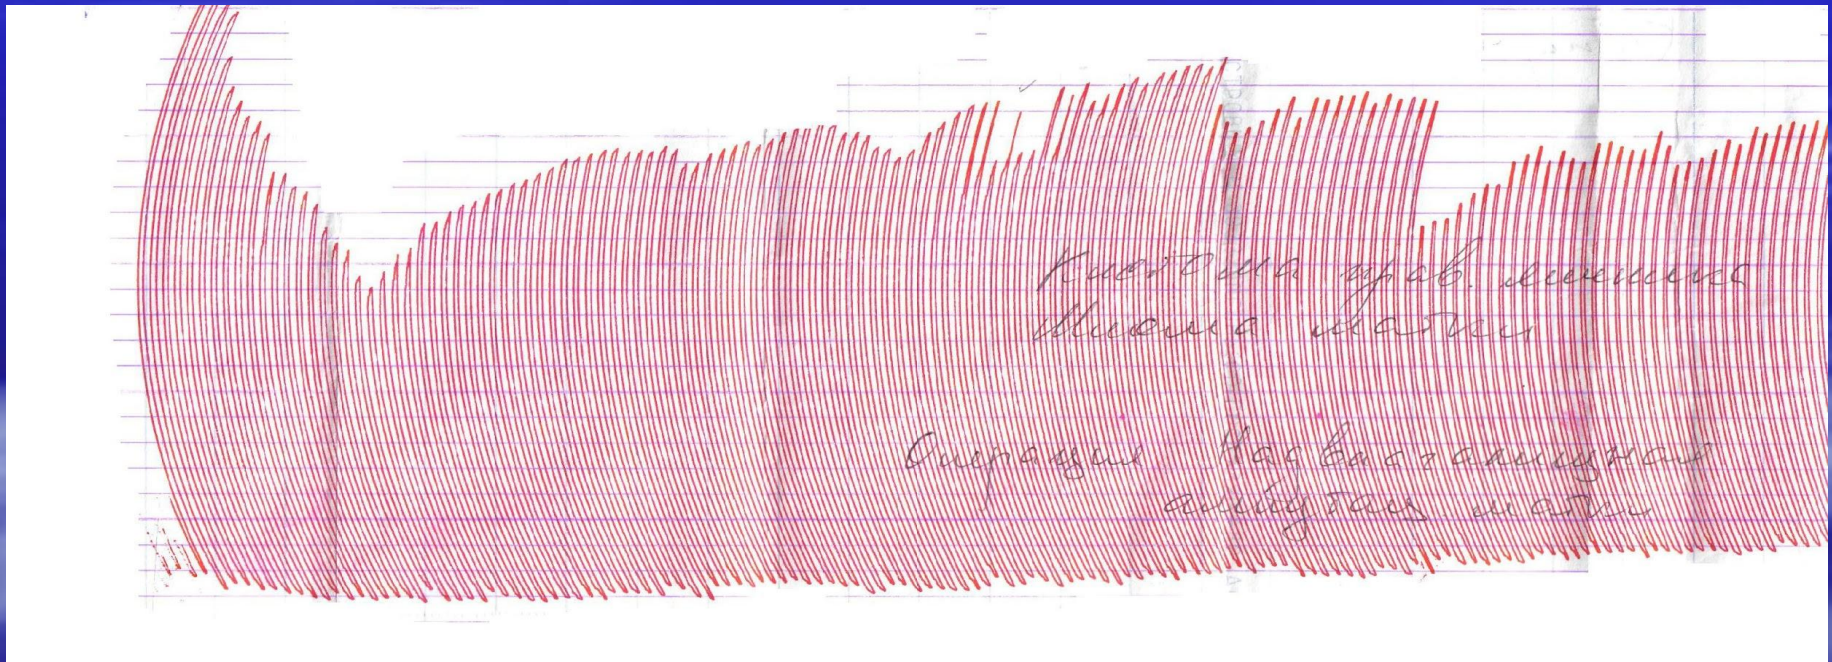 Кистома прав. яичника
Миома матки
Операция Надвлагалищная
ампутац. матки